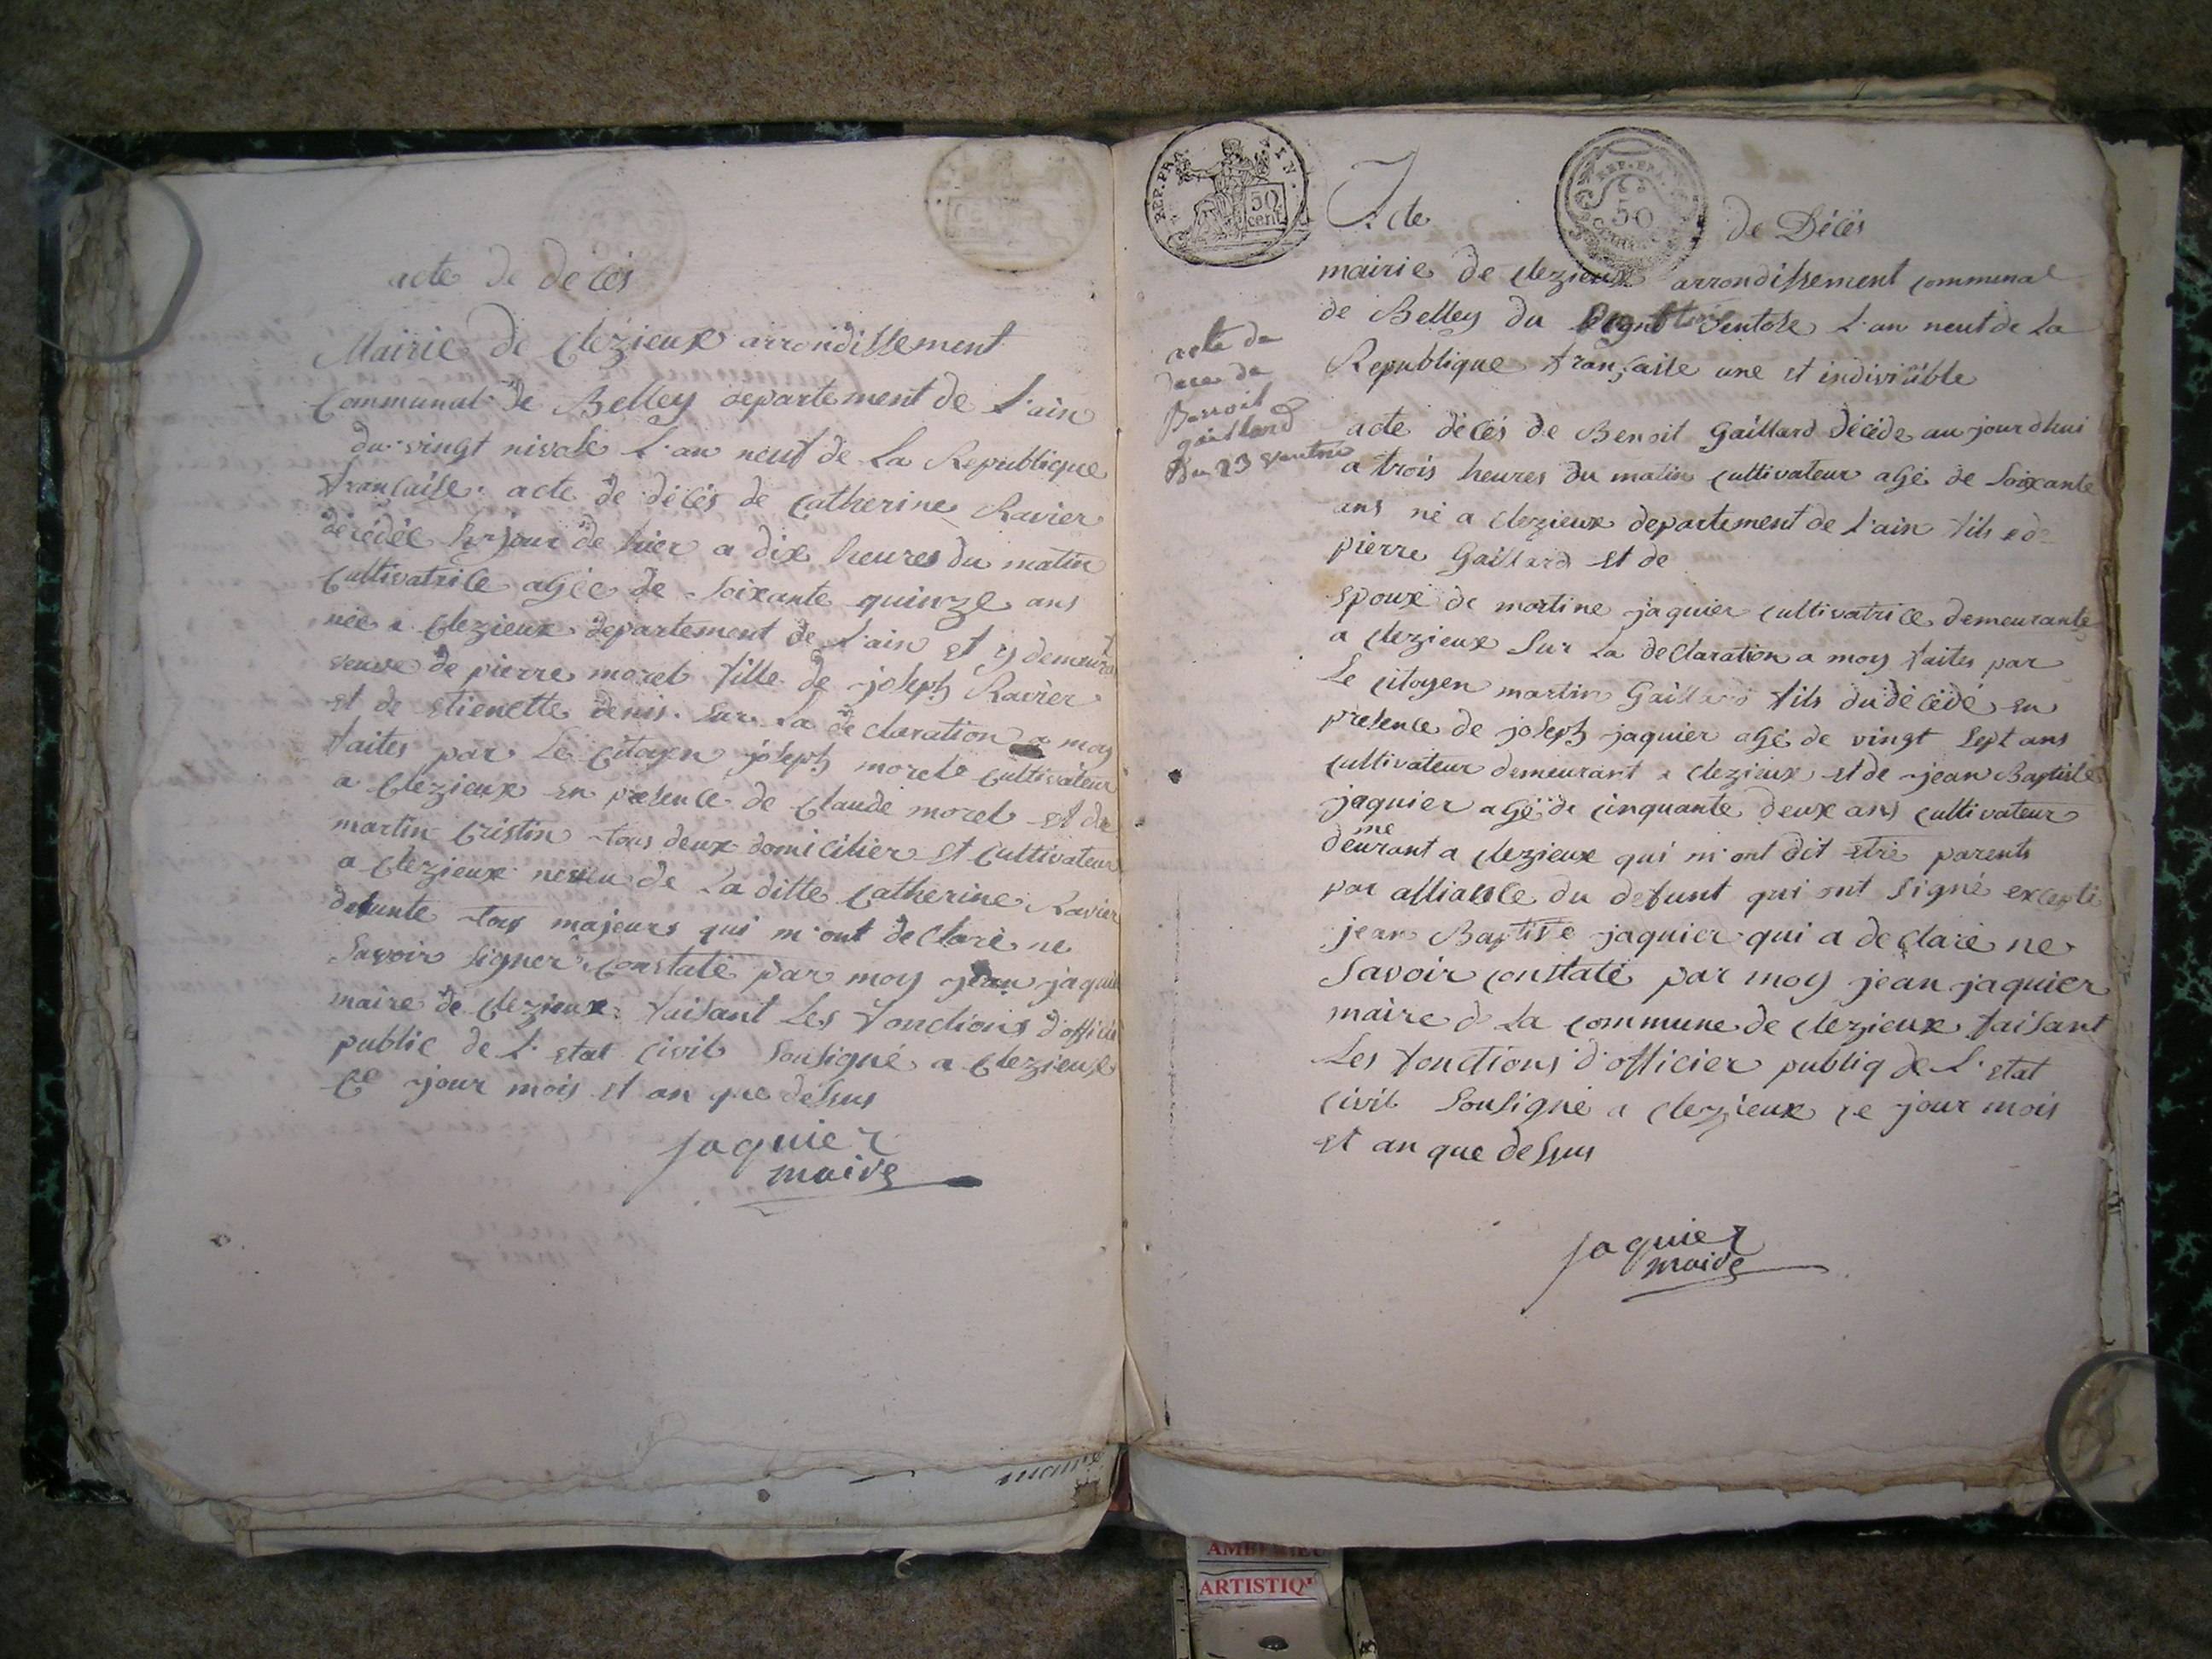 acte de décès
Mairie de Clezieux arrondissement
Communal de Belley departement de l'ain
du vingt nivose l'an neuf de la Republique
française. acte de décès de Catherine Ravier
décédée le jour de hier a dix heures du matin
Cultivatrice agée de soixante quinze ans
née a Clezieux departement de l'ain et y demeura
veuve de pierre morel fille de joseph Ravier
et de etienette denis. sur la declaration a moy
faites par le Citoyen joseph morel cultivateur
a Clezieux en presence de Claude morel et de
martin Cristin tous deux domicilier et Cultivateur
a Clezieux neveu de la ditte Catherine Ravier
defunte tous majeurs qui m'ont declaré ne
savoir signer. Constaté par moy jean jaquie
maire de Clezieux. faisant les fonctions d'officie
public de l'etat civil sousigné a Clezieux
Ce jour mois et an que dessus
jaquier
maire
REP. FRA. 50 cent.
REP. FRA. 50
Acte de Décès
mairie de Clezieux arrondissement communal
de Belley du ventose l'an neuf de la
Republique française une et indivisible
acte de
dece de
Benoit
gaillard
du 23 ventose
acte décès de Benoit Gaillard décédé aujourdhui
a trois heures du matin cultivateur agé de soixante
ans né a Clezieux departement de l'ain fils de
pierre Gaillard et de
epoux de martine jaquier cultivatrice demeurante
a Clezieux sur la declaration a moy faites par
Le citoyen martin Gaillard fils du décédé en
presence de joseph jaquier agé de vingt sept ans
cultivateur demeurant a Clezieux et de jean Baptiste
jaquier agé de cinquante deux ans cultivateur
demeurant a Clezieux qui m'ont dit etre parents
par alliance du defunt qui ont signé excepté
jean Baptiste jaquier qui a declaré ne
savoir constaté par moy jean jaquier
maire d la commune de Clezieux faisant
Les fonctions d'officier publiq de l'etat
civil sousigné a Clezieux ce jour mois
et an que dessus
jaquier
maire
AMBERIEU
ARTISTIQ